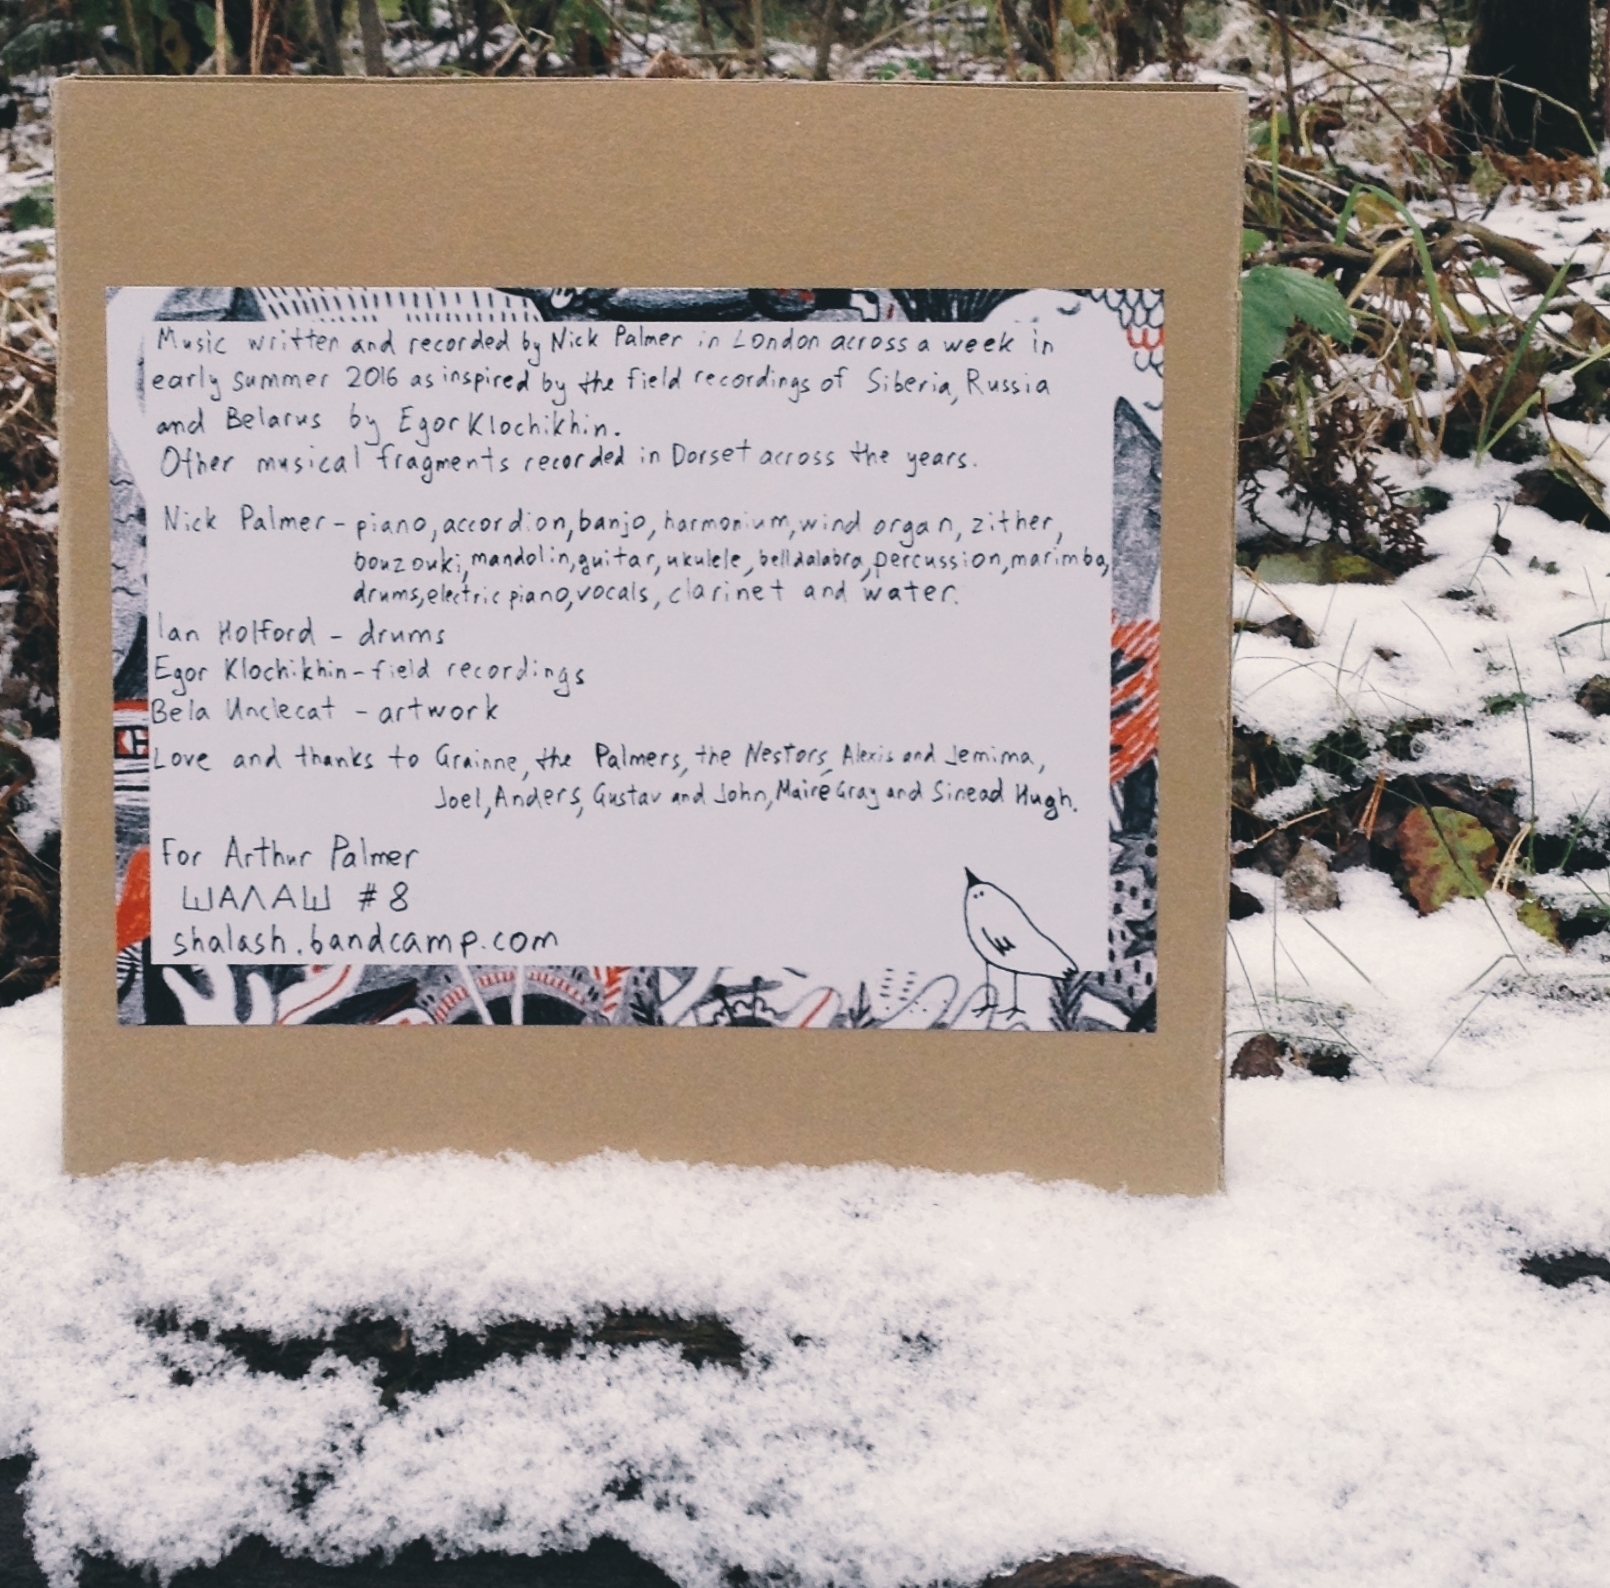 Music written and recorded by Nick Palmer in London across a week in
early summer 2016 as inspired by the field recordings of Siberia, Russia
and Belarus by Egor Klochikhin.
Other musical fragments recorded in Dorset across the years.
Nick Palmer - piano, accordion, banjo, harmonium, wind organ, zither,
bouzouki, mandolin, guitar, ukulele, belldalabra, percussion, marimba,
drums, electric piano, vocals, clarinet and water.
Ian Holford - drums
Egor Klochikhin - field recordings
Bela Unclecat - artwork
Love and thanks to Grainne, the Palmers, the Nestors, Alexis and Jemima,
Joel, Anders, Gustav and John, Maire Gray and Sinead Hugh.
For Arthur Palmer
ШАЛАШ #8
shalash.bandcamp.com